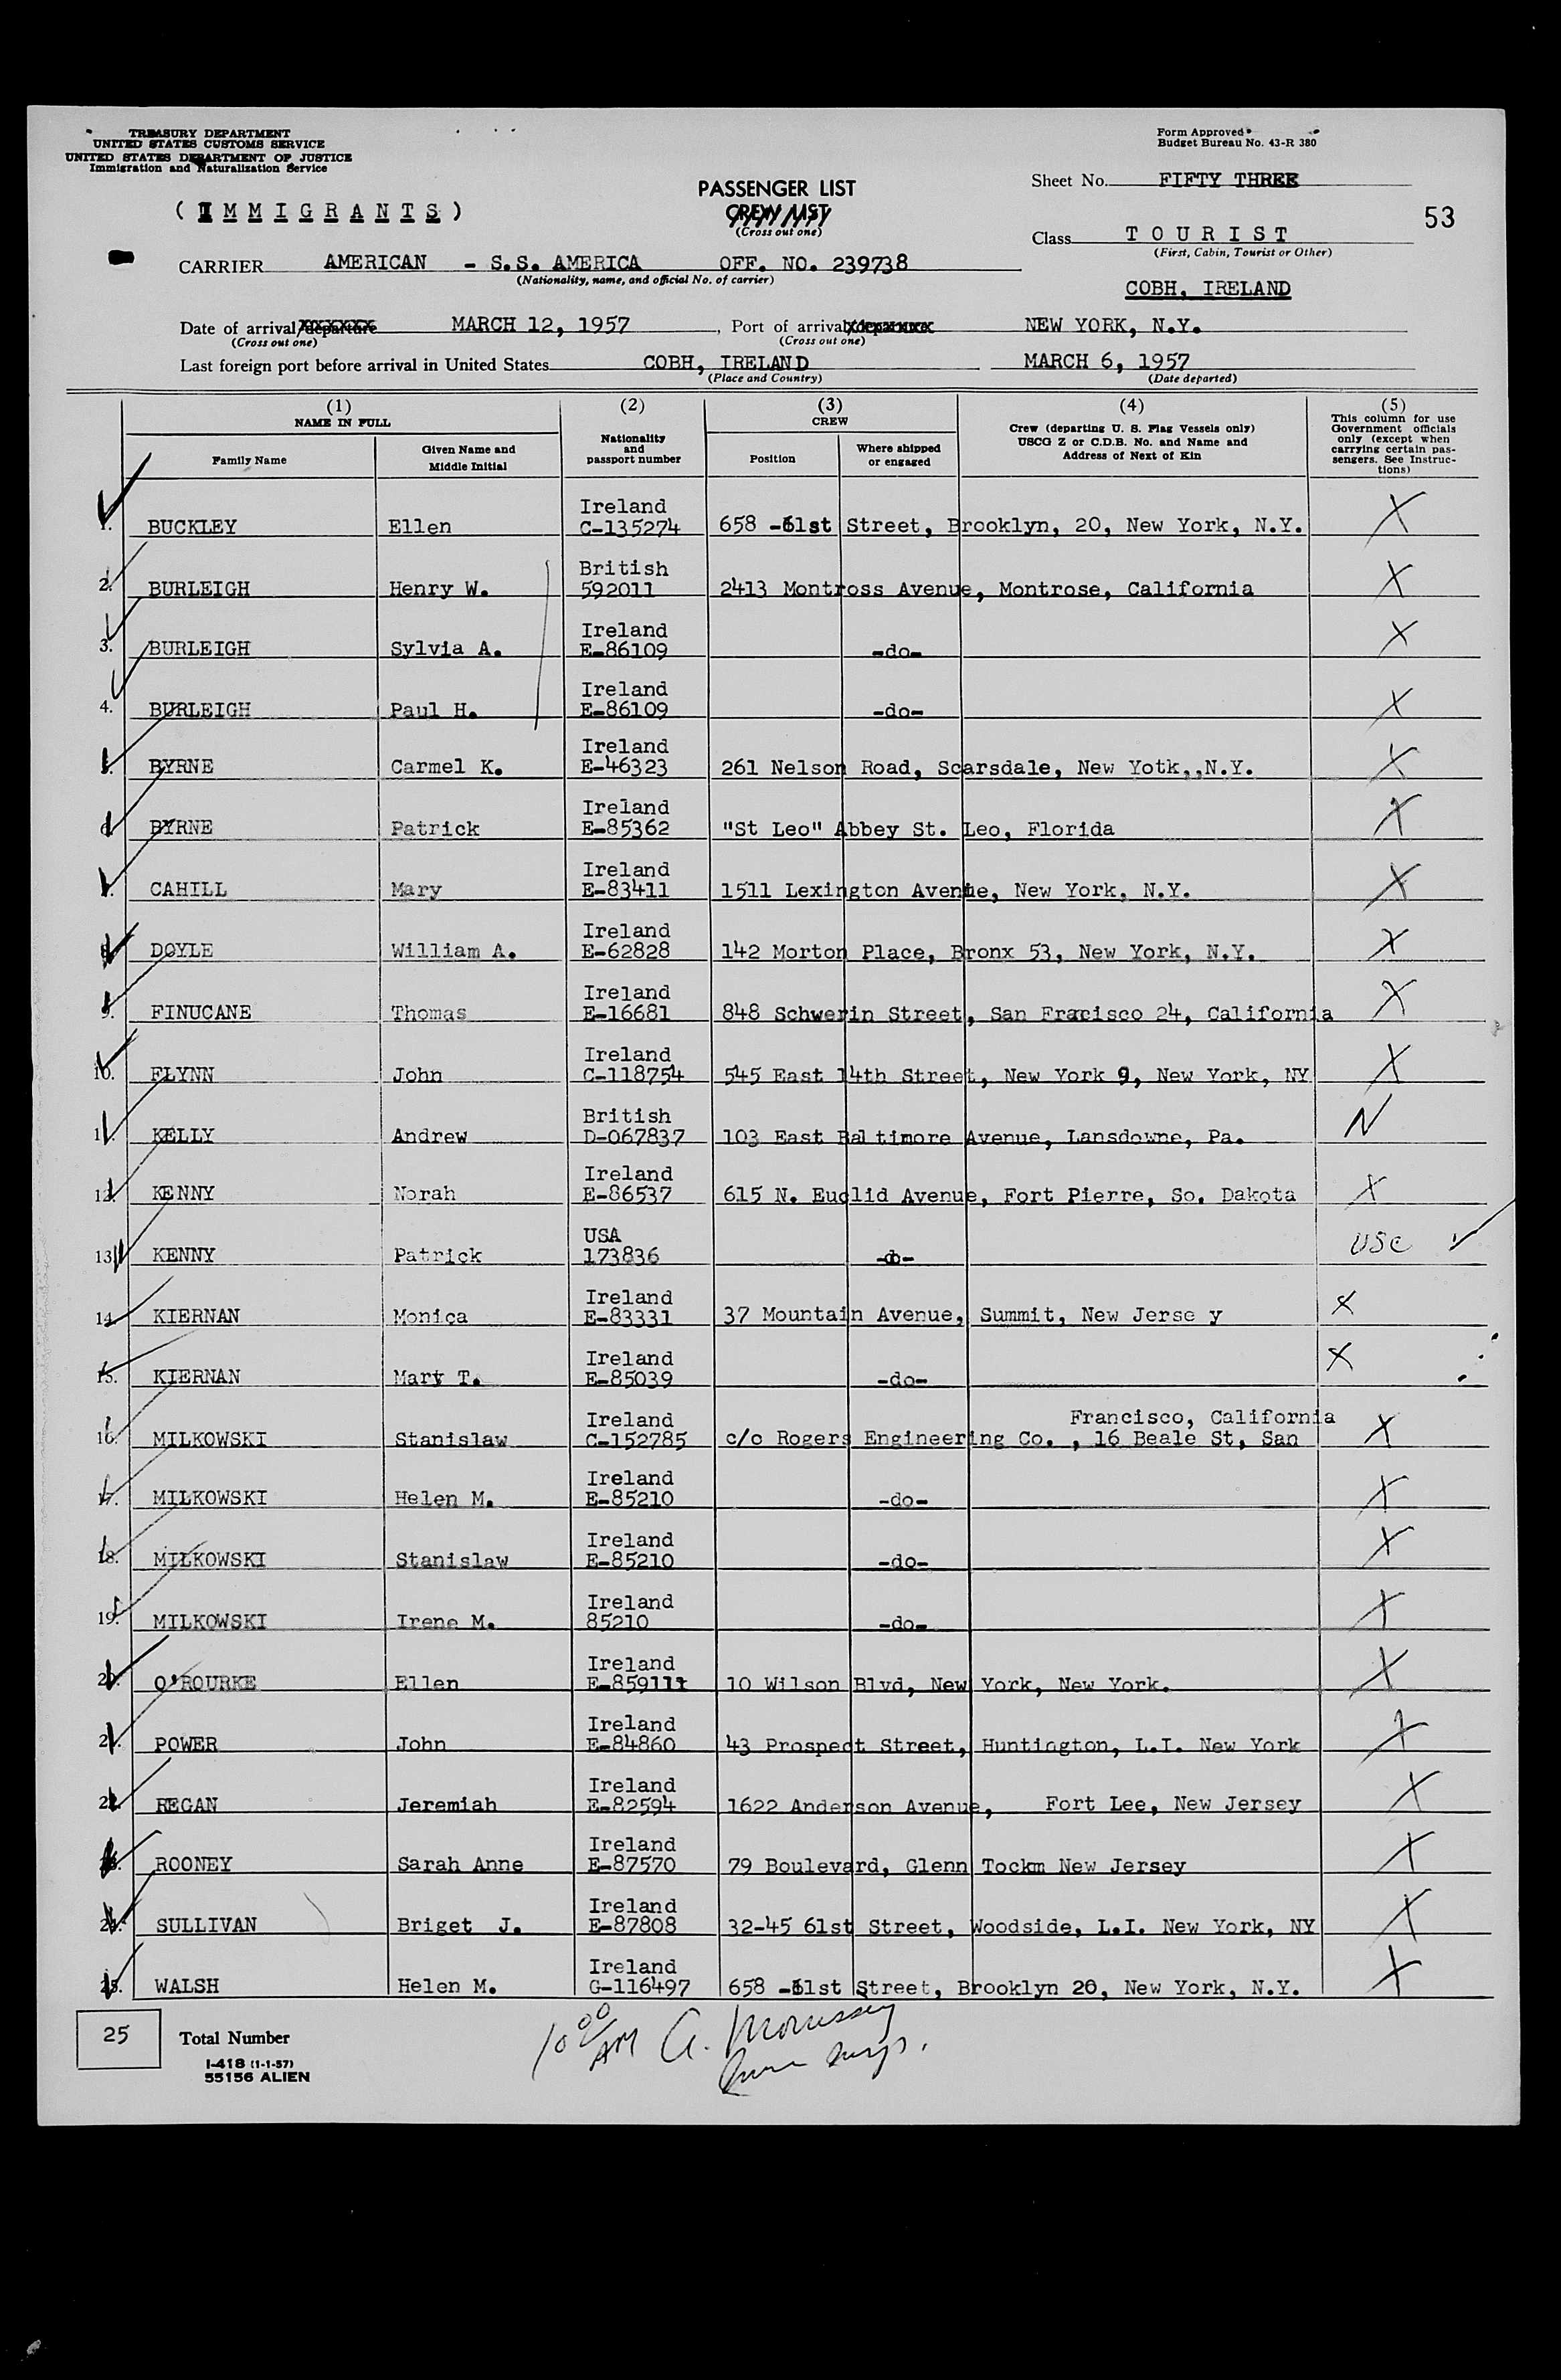 TREASURY DEPARTMENT
UNITED STATES CUSTOMS SERVICE
UNITED STATES DEPARTMENT OF JUSTICE
Immigration and Naturalization Service
Form Approved
Budget Bureau No. 43-R 380
( I M M I G R A N T S )
PASSENGER LIST
CREW LIST
(Cross out one)
Sheet No. FIFTY THREE
53
Class T O U R I S T
(First, Cabin, Tourist or Other)
CARRIER AMERICAN - S.S. AMERICA OFF. NO. 239738
(Nationality, name, and official No. of carrier)
COBH, IRELAND
Date of arrival/departure MARCH 12, 1957, Port of arrival/departure NEW YORK, N.Y.
(Cross out one) (Cross out one)
Last foreign port before arrival in United States COBH, IRELAND MARCH 6, 1957
(Place and Country) (Date departed)
(1) (2) (3) (4) (5)
NAME IN FULL
Family Name
Given Name and Middle Initial
Nationality and passport number
CREW
Position
Where shipped or engaged
Crew (departing U. S. Flag Vessels only)
USCG Z or C.D.B. No. and Name and
Address of Next of Kin
This column for use
Government officials
only (except when
carrying certain pas-
sengers. See Instruc-
tions)
Ireland
1. BUCKLEY Ellen C-135274 658 -61st Street, Brooklyn, 20, New York, N.Y. X
British
2. BURLEIGH Henry W. 592011 2413 Montross Avenue, Montrose, California X
Ireland
3. BURLEIGH Sylvia A. E-86109 -do- X
Ireland
4. BURLEIGH Paul H. E-86109 -do- X
Ireland
5. BYRNE Carmel K. E-46323 261 Nelson Road, Scarsdale, New Yotk,,N.Y. X
Ireland
6. BYRNE Patrick E-85362 "St Leo" Abbey St. Leo, Florida X
Ireland
7. CAHILL Mary E-83411 1511 Lexington Avenue, New York, N.Y. X
Ireland
8. DOYLE William A. E-62828 142 Morton Place, Bronx 53, New York, N.Y. X
Ireland
9. FINUCANE Thomas E-16681 848 Schwerin Street, San Fracisco 24, California X
Ireland
10. FLYNN John C-118754 545 East 14th Street, New York 9, New York, NY X
British
11. KELLY Andrew D-067837 103 East Baltimore Avenue, Lansdowne, Pa. N
Ireland
12. KENNY Norah E-86537 615 N. Euclid Avenue, Fort Pierre, So. Dakota X
USA
13. KENNY Patrick 173836 -do- USC
Ireland
14. KIERNAN Monica E-83331 37 Mountain Avenue, Summit, New Jerse y X
Ireland
15. KIERNAN Mary T. E-85039 -do- X
Ireland Francisco, California
16. MILKOWSKI Stanislaw C-152785 c/o Rogers Engineering Co. , 16 Beale St, San X
Ireland
17. MILKOWSKI Helen M. E-85210 -do- X
Ireland
18. MILKOWSKI Stanislaw E-85210 -do- X
Ireland
19. MILKOWSKI Irene M. 85210 -do- X
Ireland
20. O'ROURKE Ellen E-85911 10 Wilson Blvd, New York, New York. X
Ireland
21. POWER John E-84860 43 Prospect Street, Huntington, L.I. New York X
Ireland
22. REGAN Jeremiah E-82594 1622 Anderson Avenue, Fort Lee, New Jersey X
Ireland
23. ROONEY Sarah Anne E-87570 79 Boulevard, Glenn Tockm New Jersey X
Ireland
24. SULLIVAN Briget J. E-87808 32-45 61st Street, Woodside, L.I. New York, NY X
Ireland
25. WALSH Helen M. G-116497 658 -61st Street, Brooklyn 20, New York, N.Y. X
25 Total Number
10 00 AM A. Morrissey
I-418 (1-1-57)
55156 ALIEN